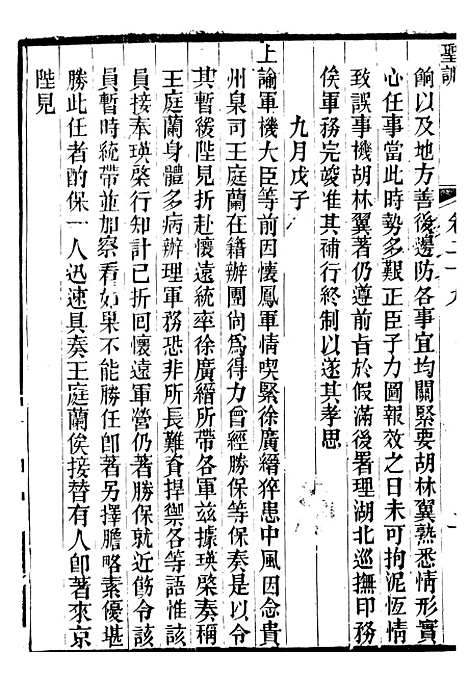 聖訓
卷二十九
餉以及地方善後邊防各事宜均關緊要胡林翼熟悉情形實
心任事當此時勢多艱正臣子力圖報效之日未可拘泥恆情
致誤事機胡林翼著仍遵前旨於假滿後署理湖北巡撫印務
俟軍務完竣准其補行終制以遂其孝思
九月戊子
上諭軍機大臣等前因懷鳳軍情喫緊徐廣縉猝患中風因念貴
州臬司王庭蘭在籍辦團尙爲得力曾經勝保等保奏是以令
其暫緩陛見折赴懷遠統率徐廣縉所帶各軍茲據瑛棨奏稱
王庭蘭身體多病辦理軍務恐非所長難資捍禦各等語惟該
員接奉瑛棨行知計已折回懷遠軍營仍著勝保就近飭令該
員暫時統帶並加察看如果不能勝任卽著另擇膽略素優堪
勝此任者酌保一人迅速具奏王庭蘭俟接替有人卽著來京
陛見